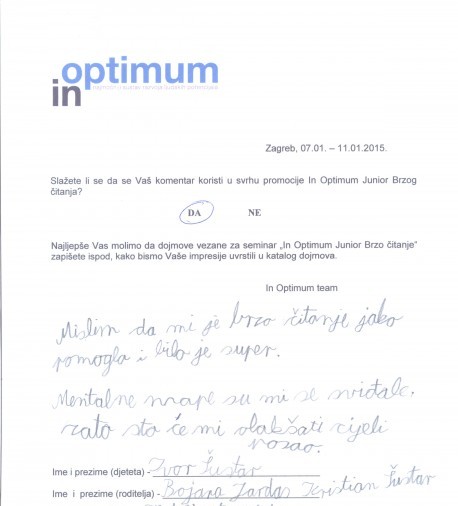 in optimum
Zagreb, 07.01. – 11.01.2015.
Slažete li se da se Vaš komentar koristi u svrhu promocije In Optimum Junior Brzog
čitanja?
DA NE
Najljepše Vas molimo da dojmove vezane za seminar „In Optimum Junior Brzo čitanje“
zapišete ispod, kako bismo Vaše impresije uvrstili u katalog dojmova.
In Optimum team
Mislim da mi je brzo čitanje jako
pomoglo i bilo je super.
Mentalne mape su mi se sviđale,
zato sto će mi olakšati cijeli
posao.
Ime i prezime (djeteta) - Ivor Šustar
Ime i prezime (roditelja) - Bojana Jardas Kristian Šustar